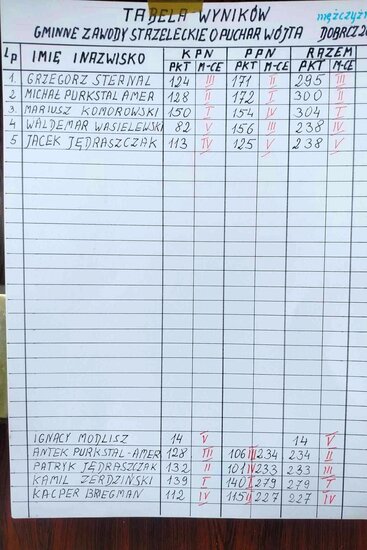 TABELA WYNIKÓW mężczyźn
GMINNE ZAWODY STRZELECKIE O PUCHAR WÓJTA DOBRCZ
Lp IMIĘ I NAZWISKO KPN PPN RAZEM
PKT M-CE PKT M-CE PKT M-CE
1. GRZEGORZ STERNAL 124 III 171 II 295 III
2 MICHAŁ PURKSTAL AMER 128 II 172 I 300 II
3. MARIUSZ KOMOROWSKI 150 I 154 IV 304 I
4 WALDEMAR WASIELEWSKI 82 V 156 III 238 IV
5 JACEK JĘDRASZCZAK 113 IV 125 V 238 V
IGNACY MODLISZ 14 V 14 V
ANTEK PURKSTAL-AMER 128 III 106 III 234 234 II
PATRYK JĘDRASZCZAK 132 II 101 IV 233 233 III
KAMIL ZERDZIŃSKI 139 I 140 I 279 279 I
KACPER BREGMAN 112 IV 115 II 227 227 IV